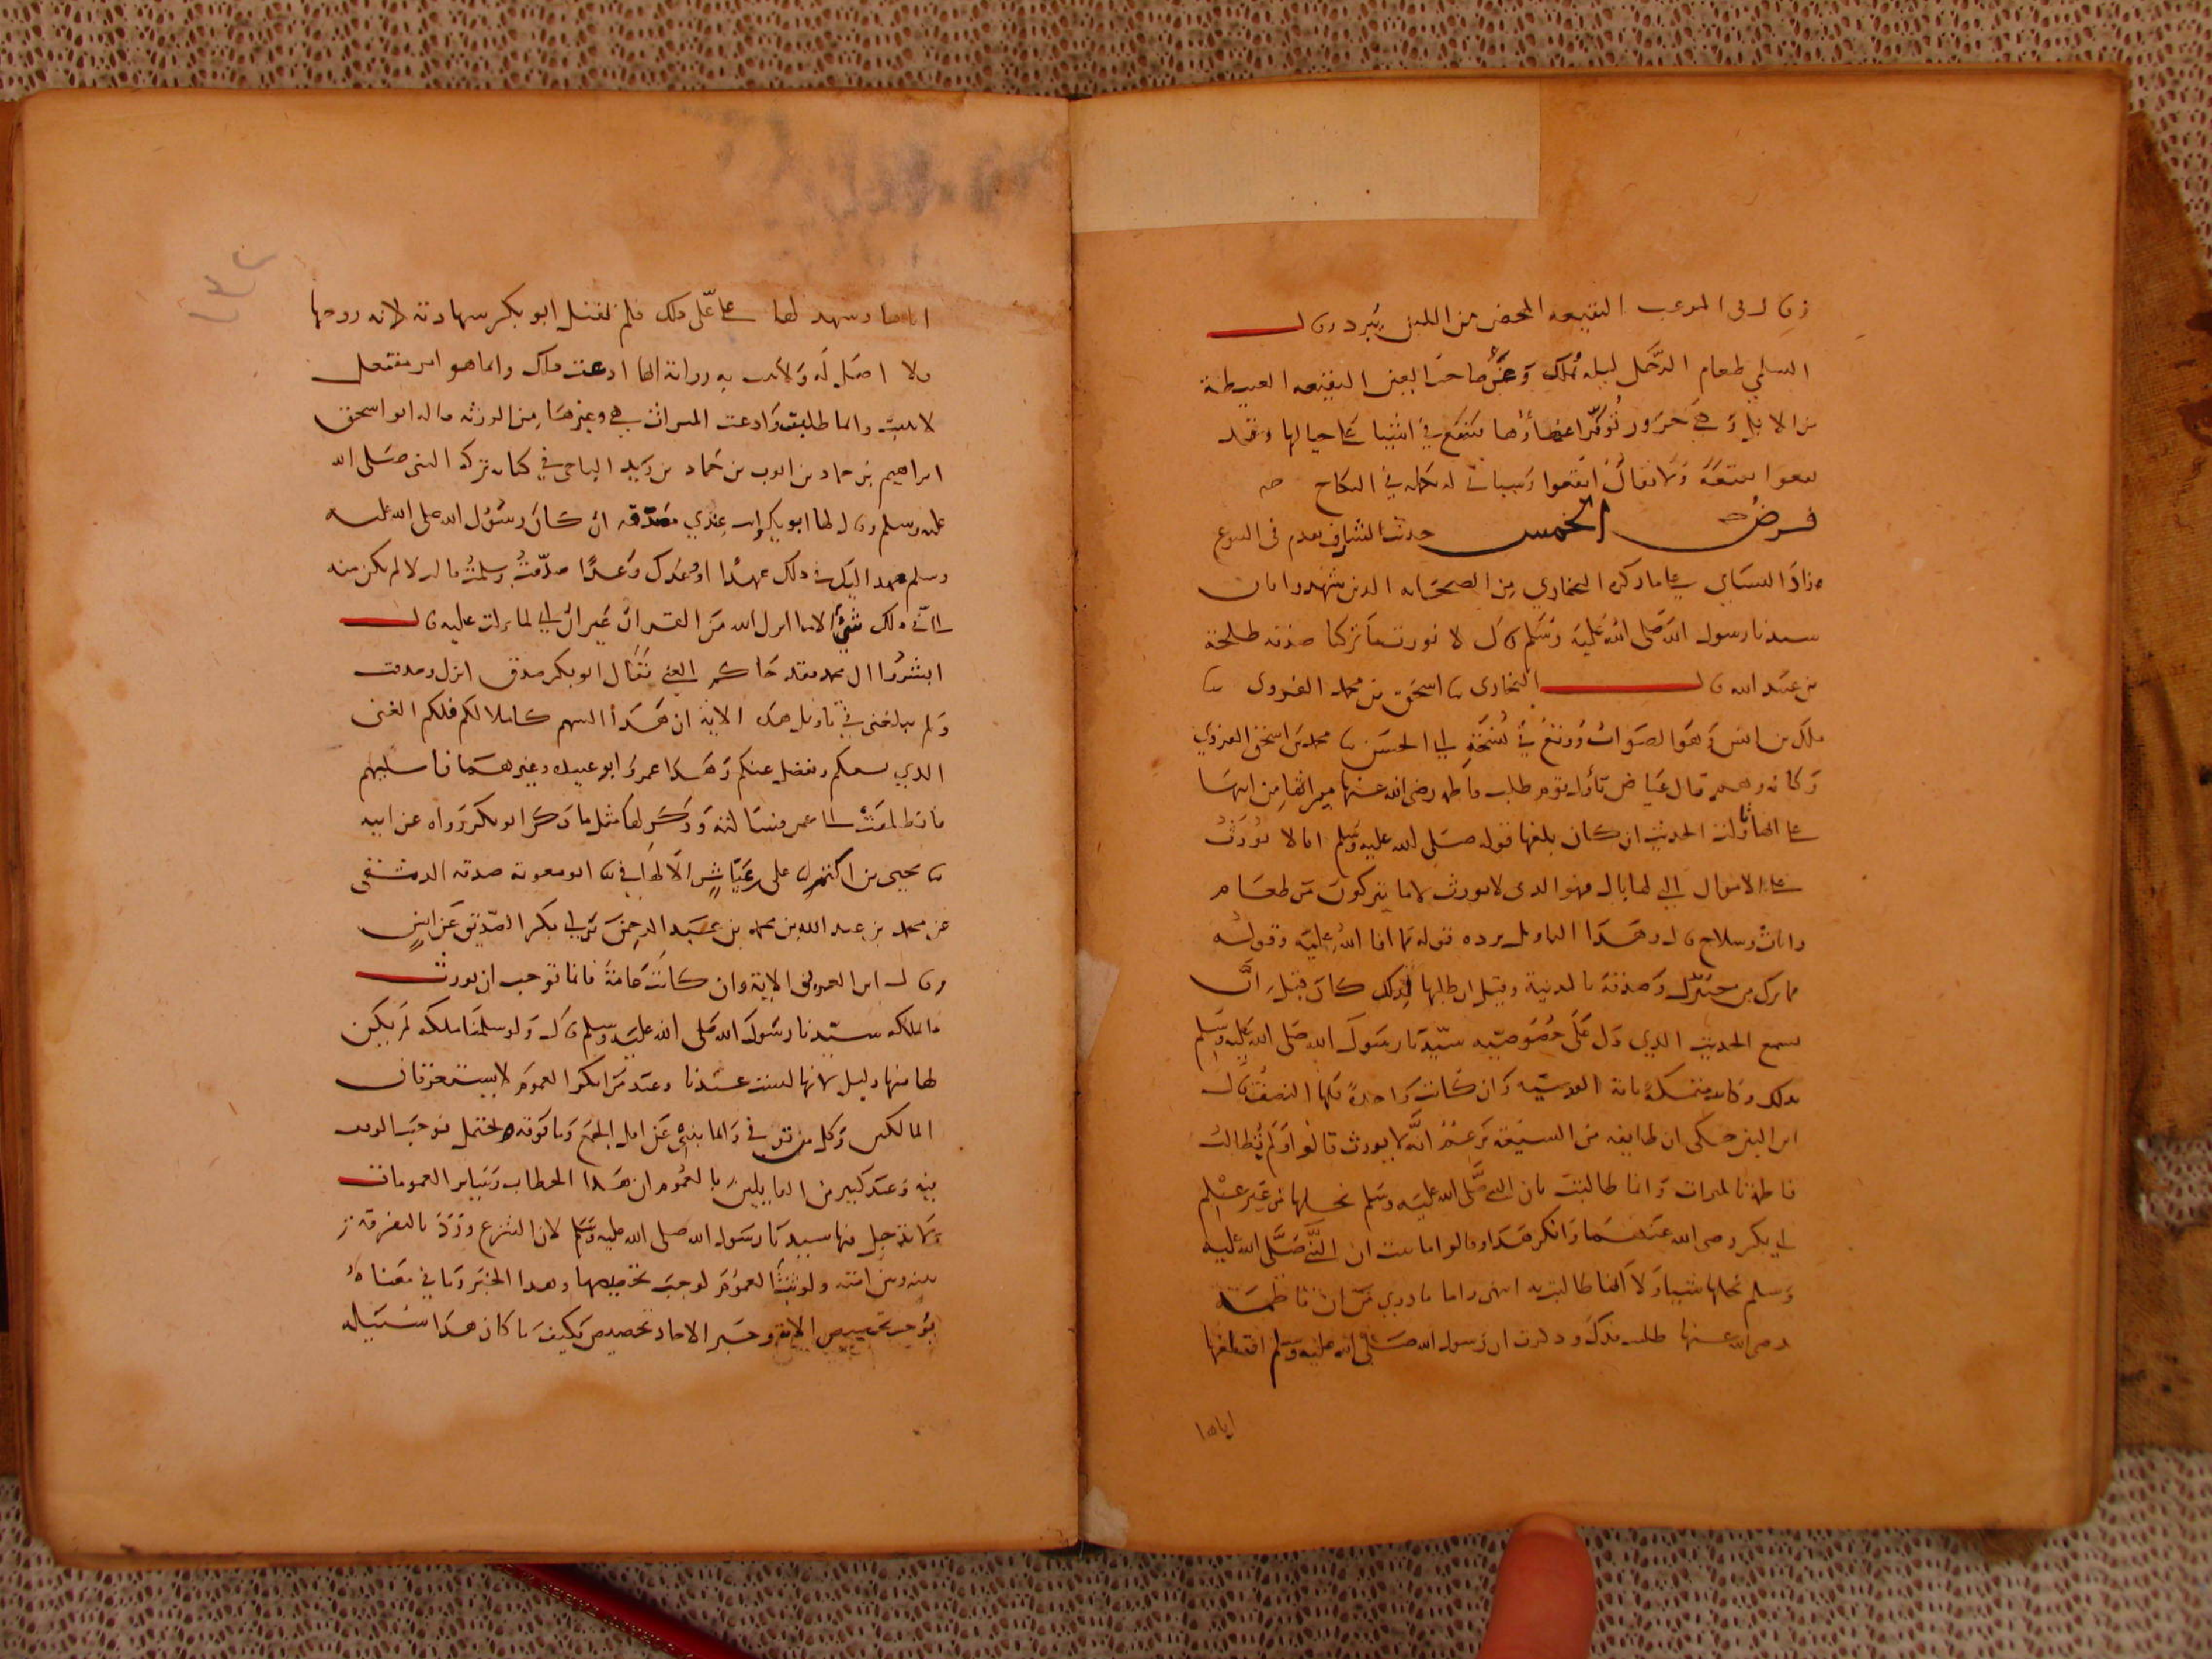 وفى الموعب النقيعه المحض من اللبن يبرد وقال
السلمي طعام الرجل ليله يملك وعن صاحب العين النقيعه العبيطة
من الابل وهي جزور توفر اعضاؤها فتنقع في اشيا على حيالها وقد
نقعوا نقيعة ولا يقال انقعوا وسياتي له تكملة في النكاح
فرض الخمس حديث الشارف تقدم فى البيوع
وزاد النسائي على ما ذكره البخاري من الصحابه الذين شهدوا بان
سيدنا رسول الله صلى الله عليه وسلم قال لا نورث ما تركنا صدقة طلحة
بن عبد الله قال البخارى ثنا اسحق بن محمد الفروى ثنا
ملك بن انس وهو الصواب ووقع في نسخة ابي الحسن ثنا محمد بن اسحق الفروي
وكانه وهم قال عياض تأول قوم طلب فاطمه رضى الله عنها ميراثها من ابيها
على انها تأولت الحديث ان كان بلغها قوله صلى الله عليه وسلم انا لا نورث
على الاموال التي لها بال فهو الذى لا يورث لا ما يتركون من طعام
واثاث وسلاح قال وهذا التاويل يرده قوله مما افا الله عليه وقوله
مما ترك من خيبر وفدك وصدقته بالمدينة وقيل ان طلبها لذلك كان قبل ان
تسمع الحديث الذي دل على خصوصيه سيدنا رسول الله صلى الله عليه وسلم
بذلك وكانت متمسكة باية الوصية وان كانت واحدة فلها النصف قال
ابن التين حكى ان طايفه من الشيعه تزعم انه لا يورث قالوا ولم تطالب
فاطمة بالميراث وانما طالبت بان النبي صلى الله عليه وسلم نحلها من غير علم
ابي بكر رضى الله عنهما وانكر هذا وقالوا ما ثبت ان النبي صلى الله عليه
وسلم نحلها شيا ولا انها طالبت به انتهى واما ما روي من ان فاطمة
رضى الله عنها طلبت فدك وذكرت ان رسول الله صلى الله عليه وسلم اقطعها
اياها
اياها وشهد لها على علي ذلك فلم يقبل ابو بكر شهادته لانه زوجها
ولا اصل له ولا يثبت به رواية انها ادعت ذلك وانما هو امر مفتعل
لا يثبت وانما طلبت وادعت الميراث هي وغيرها من الورثه قاله ابو اسحق
ابراهيم بن حماد بن اسحق بن حماد بن زيد في كتاب تركه النبى صلى الله
عليه وسلم وقال لها ابو بكر انت عندي مصدقه ان كان رسول الله صلى الله عليه
وسلم عهد اليك في ذلك عهدا او وعدك وعدا صدقت وسلمت قال لا لم يكن منه
الي في ذلك شيء الا ما انزل الله من القران غير اني لما نزلت عليه قال
ابشروا ال محمد فقد جاكم الغنى فقال ابو بكر صدق ابوك وصدقت
ولم يبلغنى في تاويل هذه الاية ان هذا السهم كاملا لكم فلكم الغنى
الذي يسعكم ويفضل عنكم وهذا عمر وابو عبيده وغيرهما فاسليهم
فانطلقت الى عمر فسالته وذكر لها مثل ما ذكر ابو بكر رواه عن ابيه
ثنا يحيى بن اكثم ثنا علي بن عياش الالهاني ثنا ابو معوية صدقه الدمشقى
عن محمد بن عبد الله بن محمد بن عبد الرحمن بن ابي بكر الصديق عن انس
وقال ابن العربى الاية وان كانت عامة فانما توجب ان يورث
ما ملكه سيدنا رسول الله صلى الله عليه وسلم قال ولو سلمنا ملكه لم يكن
لها منها دليل لانها ليست عندنا وعند من انكر العموم لا يستغرقان
المالكين وكل من توفي وانما ينبئ عن اقل الجمع وما فوقه محتمل فوجب الوقف
فيه وعند كبير من القايلين بالعموم ان هذا الخطاب وساير العمومات
لا يدخل فيها سيدنا رسول الله صلى الله عليه وسلم لان الشرع ورد بالتفرقة
بينه وبين امته ولو ثبت العموم لوجب تخصيصها وهذا الخبر وما في معناه
يوجب تخصيص الاية وخبر الاحاد تخصيص فكيف ما كان هذا سبيله